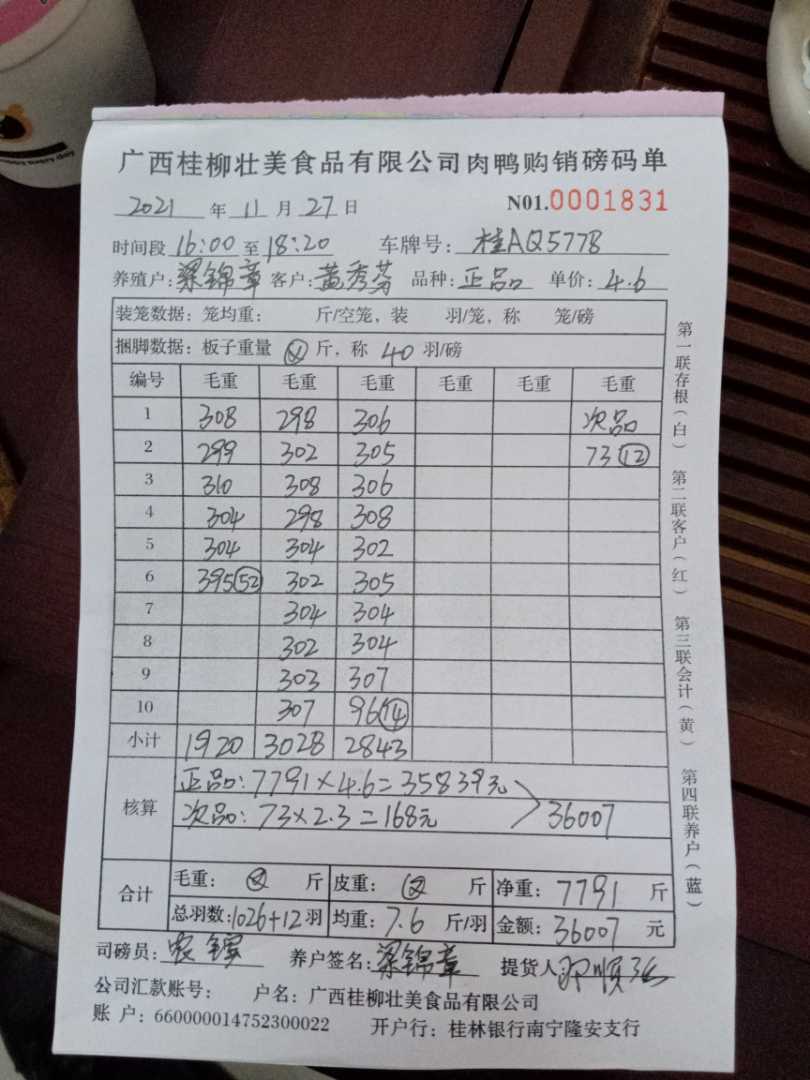 广西桂柳壮美食品有限公司肉鸭购销磅码单
2021 年 11 月 27 日 N01.0001831
时间段 16:00 至 18:20 车牌号: 桂AQ577B
养殖户: 梁锦章 客户: 黄秀芬 品种: 正品 单价: 4.6
装笼数据: 笼均重: 斤/空笼, 装 羽/笼, 称 笼/磅
捆脚数据: 板子重量 斤, 称 40 羽/磅
编号 毛重 毛重 毛重 毛重 毛重 毛重
1 308 298 306 次品
2 299 302 305 73 12
3 310 308 306
4 304 298 308
5 304 304 302
6 395 52 302 305
7 304 304
8 302 304
9 303 307
10 307 96 14
小计 1920 3028 2843
核算
正品: 7791×4.6=35839元
次品: 73×2.3=168元
36007
合计
毛重: 斤 皮重: 斤 净重: 7791 斤
总羽数: 1026+12 羽 均重: 7.6 斤/羽 金额: 36007 元
司磅员: 养户签名: 梁锦章 提货人
公司汇款账号: 户名: 广西桂柳壮美食品有限公司
账 户: 660000014752300022 开户行: 桂林银行南宁隆安支行
第一联存根(白) 第二联客户(红) 第三联会计(黄) 第四联养户(蓝)